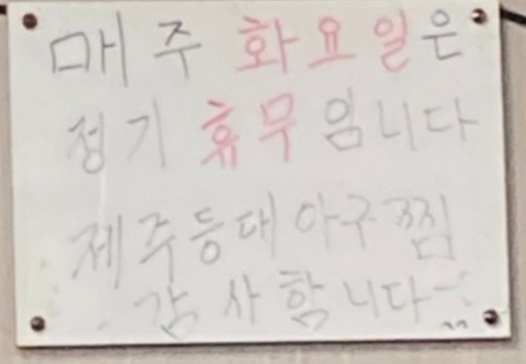 매주 화요일은
정기 휴무입니다
제주등대아구찜
감사합니다~^^